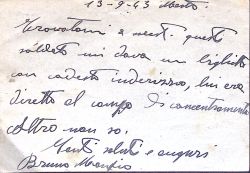 13-9-43 Mestre
Trovatomi a mest. questo
soldato mi dava un biglietto
con codesto inderizzo, lui era
diretto al campo di concentramento
Altro non so.
Tanti saluti e auguri
Bruno